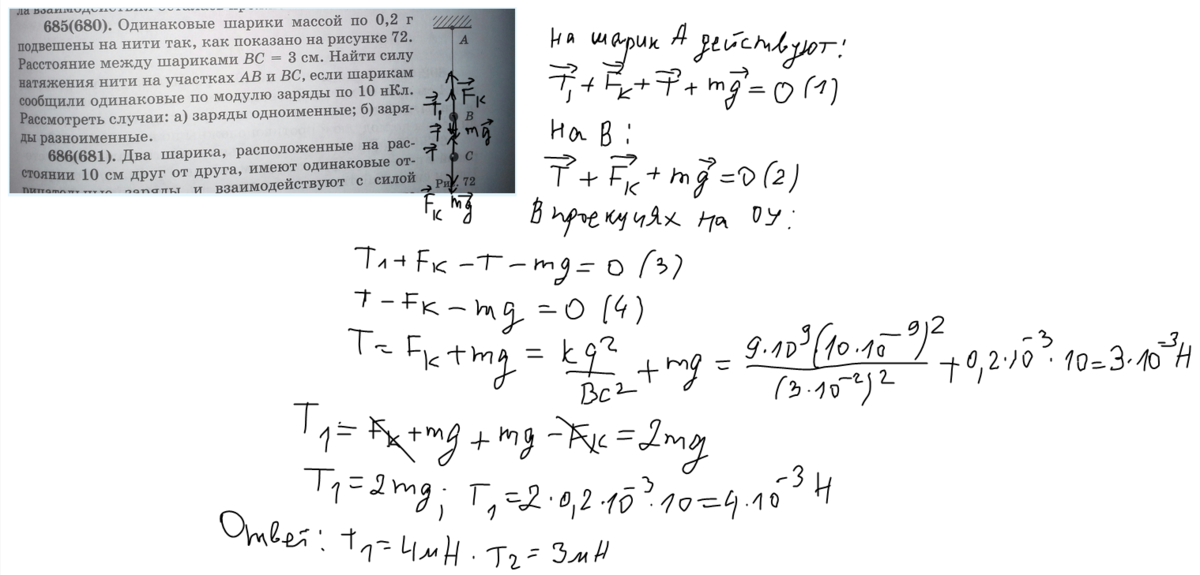 ла взаимодействия осталась преж
685(680). Одинаковые шарики массой по 0,2 г
подвешены на нити так, как показано на рисунке 72.
Расстояние между шариками BC = 3 см. Найти силу
натяжения нити на участках AB и BC, если шарикам
сообщили одинаковые по модулю заряды по 10 нКл.
Рассмотреть случаи: а) заряды одноименные; б) заря-
ды разноименные.
686(681). Два шарика, расположенные на рас-
стоянии 10 см друг от друга, имеют одинаковые от-
рицательные заряды и взаимодействуют с силой
A
F⃗к
T⃗₁
B
T⃗ mg⃗
T⃗
C
Рис. 72
F⃗к mg⃗
На шарик A действуют:
T⃗₁ + F⃗к + T⃗ + mg⃗ = 0 (1)
На B:
T⃗ + F⃗к + mg⃗ = 0 (2)
В проекциях на ОУ:
T₁ + Fк − T − mg = 0 (3)
T − Fк − mg = 0 (4)
T = Fк + mg = kq²/BC² + mg = 9·10⁹(10·10⁻⁹)²/(3·10⁻²)² + 0,2·10⁻³·10 = 3·10⁻³ Н
T₁ = Fк + mg + mg − Fк = 2mg
T₁ = 2mg; T₁ = 2·0,2·10⁻³·10 = 4·10⁻³ Н
Ответ: T₁ = 4мН. T₂ = 3мН